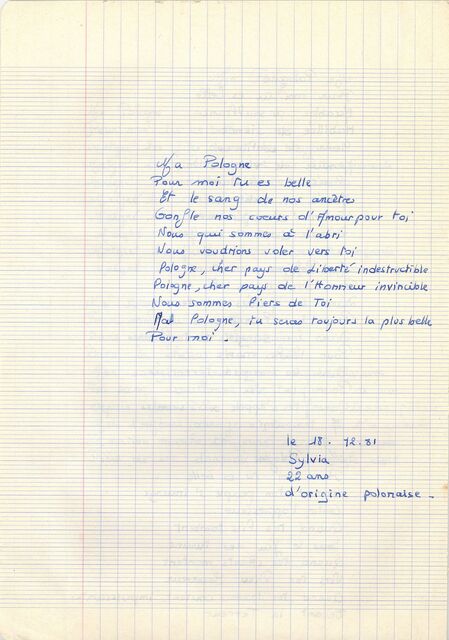 Ma Pologne
Pour moi tu es belle
Et le sang de nos ancêtres
Gonfle nos coeurs d'Amour pour toi
Nous qui sommes à l'abri
Nous voudrions voler vers toi
Pologne, cher pays de Liberté indestructible
Pologne, cher pays de l'Honneur invincible
Nous sommes Fiers de Toi
Ma Pologne, tu seras toujours la plus belle
Pour moi.
le 18. 12.81
Sylvia
22 ans
d'origine polonaise.